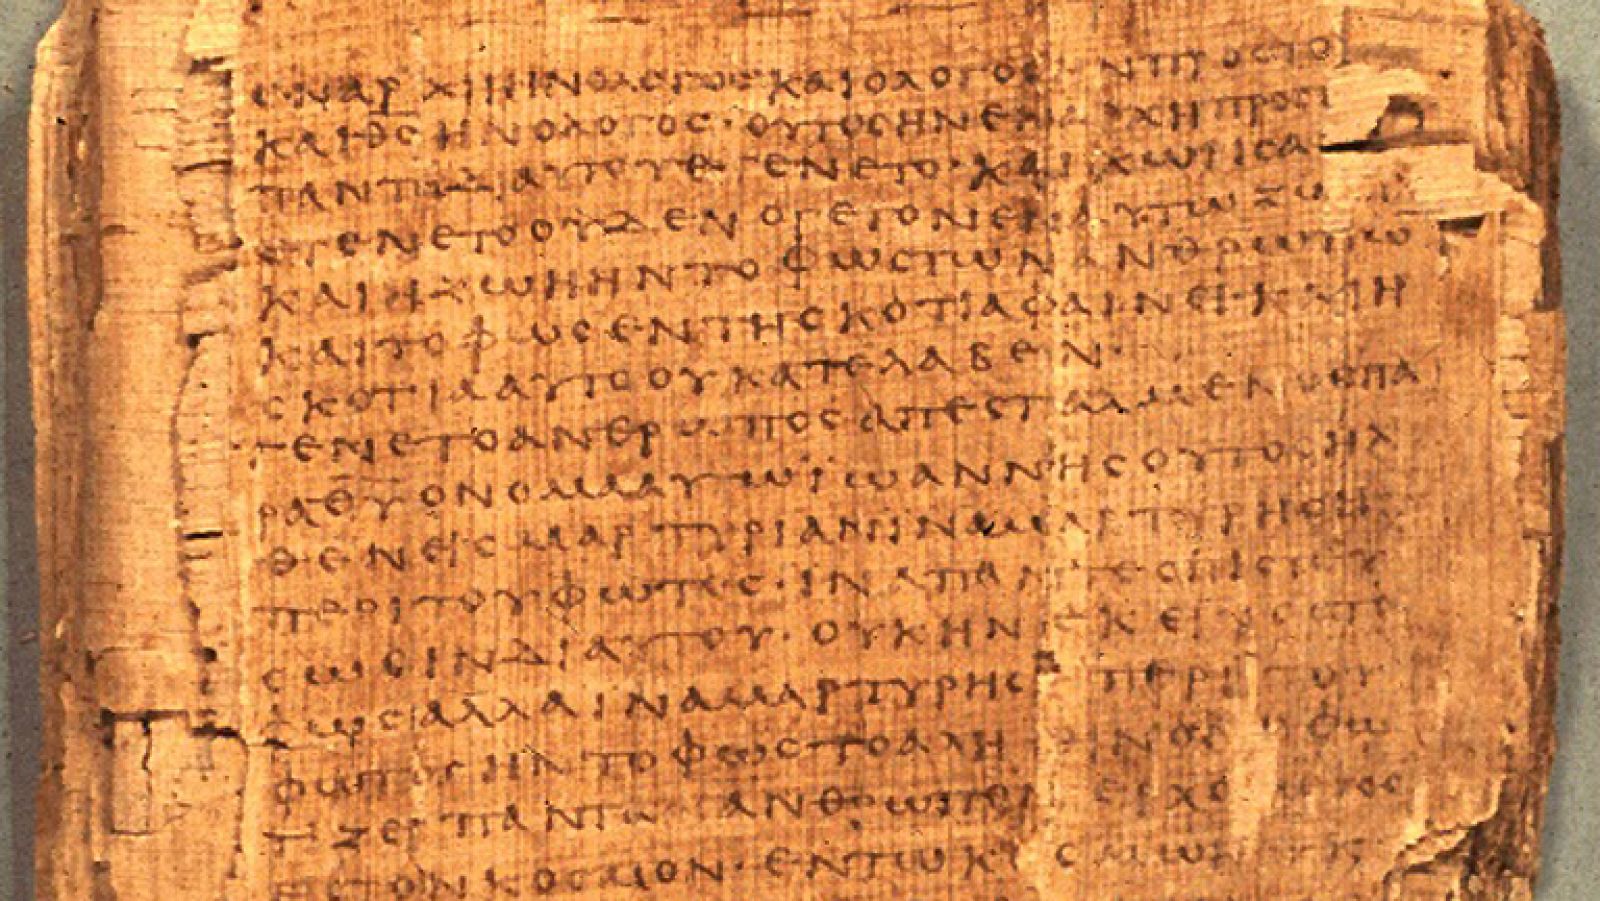 ΕΝΑΡΧΗΗΝΟΛΟΓΟΣΚΑΙΟΛΟΓΟΣΗΝΠΡΟΣΤΟ
ΚΑΙΘ̅Σ̅ΗΝΟΛΟΓΟΣ·ΟΥΤΟΣΗΝΕΝΑΡΧΗΠΡΟΣΤ
ΠΑΝΤΑΔΙΑΥΤΟΥΕΓΕΝΕΤΟ·ΚΑΙΧΩΡΙΣΑ
ΕΓΕΝΕΤΟΟΥΔΕΝΟΓΕΓΟΝΕΝΕΝΑΥΤΩΖΩ
ΚΑΙΗΖΩΗΗΝΤΟΦΩΣΤΩΝΑΝΘΡΩΠΩ̅
ΚΑΙΤΟΦΩΣΕΝΤΗΣΚΟΤΙΑΦΑΙΝΕΙ·ΚΑΙΗ
ΣΚΟΤΙΑΑΥΤΟΟΥΚΑΤΕΛΑΒΕΝ·
ΕΓΕΝΕΤΟΑΝΘΡΩΠΟΣΑΠΕΣΤΑΛΜΕΝΟΣΠΑ
ΡΑΘ̅Υ̅ΟΝΟΜΑΑΥΤΩΪΩΑΝΝΗΣΟΥΤΟΣΗΛ
ΘΕΝΕΙΣΜΑΡΤΥΡΙΑΝΙΝΑΜΑΡΤΥΡΗΣΗ
ΠΕΡΙΤΟΥΦΩΤΟΣ·ΙΝΑΠΑΝΤΕΣΠΙΣΤΕΥ
ΣΩΣΙΝΔΙΑΥΤΟΥ·ΟΥΚΗΝΕΚΕΙΝΟΣΤΟ
ΦΩΣΑΛΛΑΙΝΑΜΑΡΤΥΡΗΣΗΠΕΡΙΤΟΥ
ΦΩΤΟΣΗΝΤΟΦΩΣΤΟΑΛΗΘΙΝΟΝΟΦΩ
ΤΙΖΕΙΠΑΝΤΑΑΝΘΡΩΠΟΝΕΡΧΟΜΕΝΟ
ΕΙΣΤΟΝΚΟΣΜΟΝ·ΕΝΤΩΚΟΣΜΩΗΝ